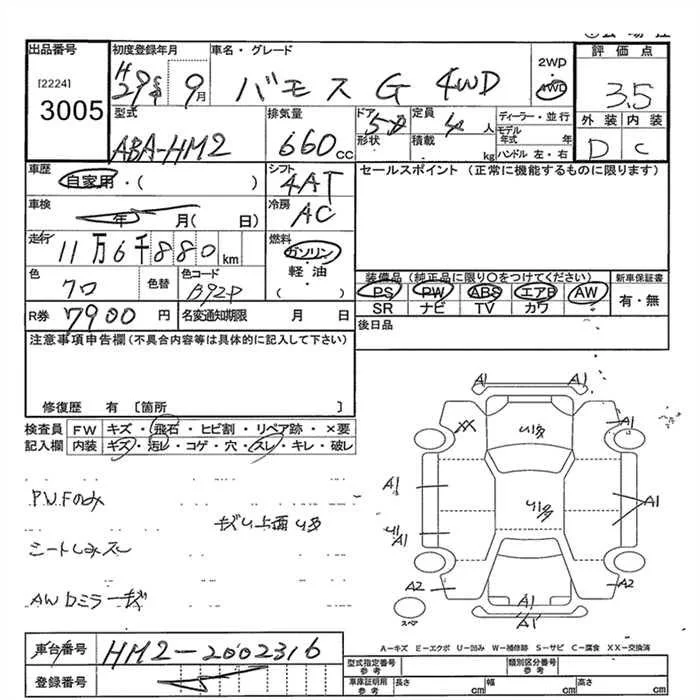 出品番号 初度登録年月 車名・グレード 2WD 評価点
[2224] H29年 9月 バモス G 4WD 4WD 3.5
3005 型式 排気量 ドア 5 定員 4人 ディーラー・並行 外装 内装
ABA-HM2 660cc 形状 積載 kg モデル年式 年 D C
ハンドル 左・右
車歴 シフト セールスポイント (正常に機能するものに限ります)
自家用・( ) 4AT
車検 冷房
年 月( 日) AC
走行 燃料
11万6千880km ガソリン
色 色替 色コード 軽・油 装備品(純正品に限り○をつけてください) 新車保証書
クロ B92P ( ) PS PW ABS エアB AW 有・無
SR ナビ TV カワ
R券 7900円 名変通知期限 月 日 後日品
注意事項申告欄(不具合内容等は具体的に記入して下さい)
修復歴 有 [箇所 ]
検査員 FW キズ・飛石・ヒビ割・リペア跡・×要
記入欄 内装 キズ・汚レ・コゲ・穴・スレ・キレ・破レ
P.W.Fのみ
シートしみスレ
AWロミラーキズ
A1 A1
XX A1
A1 A1
A1
A2 A2
スペア A1
A1
A-キズ E-エクボ U-凹み W-補修跡 S-サビ C-腐食 XX-交換済
車台番号 HM2-2002316 型式指定番号 参考 類別区分番号 参考
登録番号 車庫証明用 参考 長さ cm 幅 cm 高さ cm